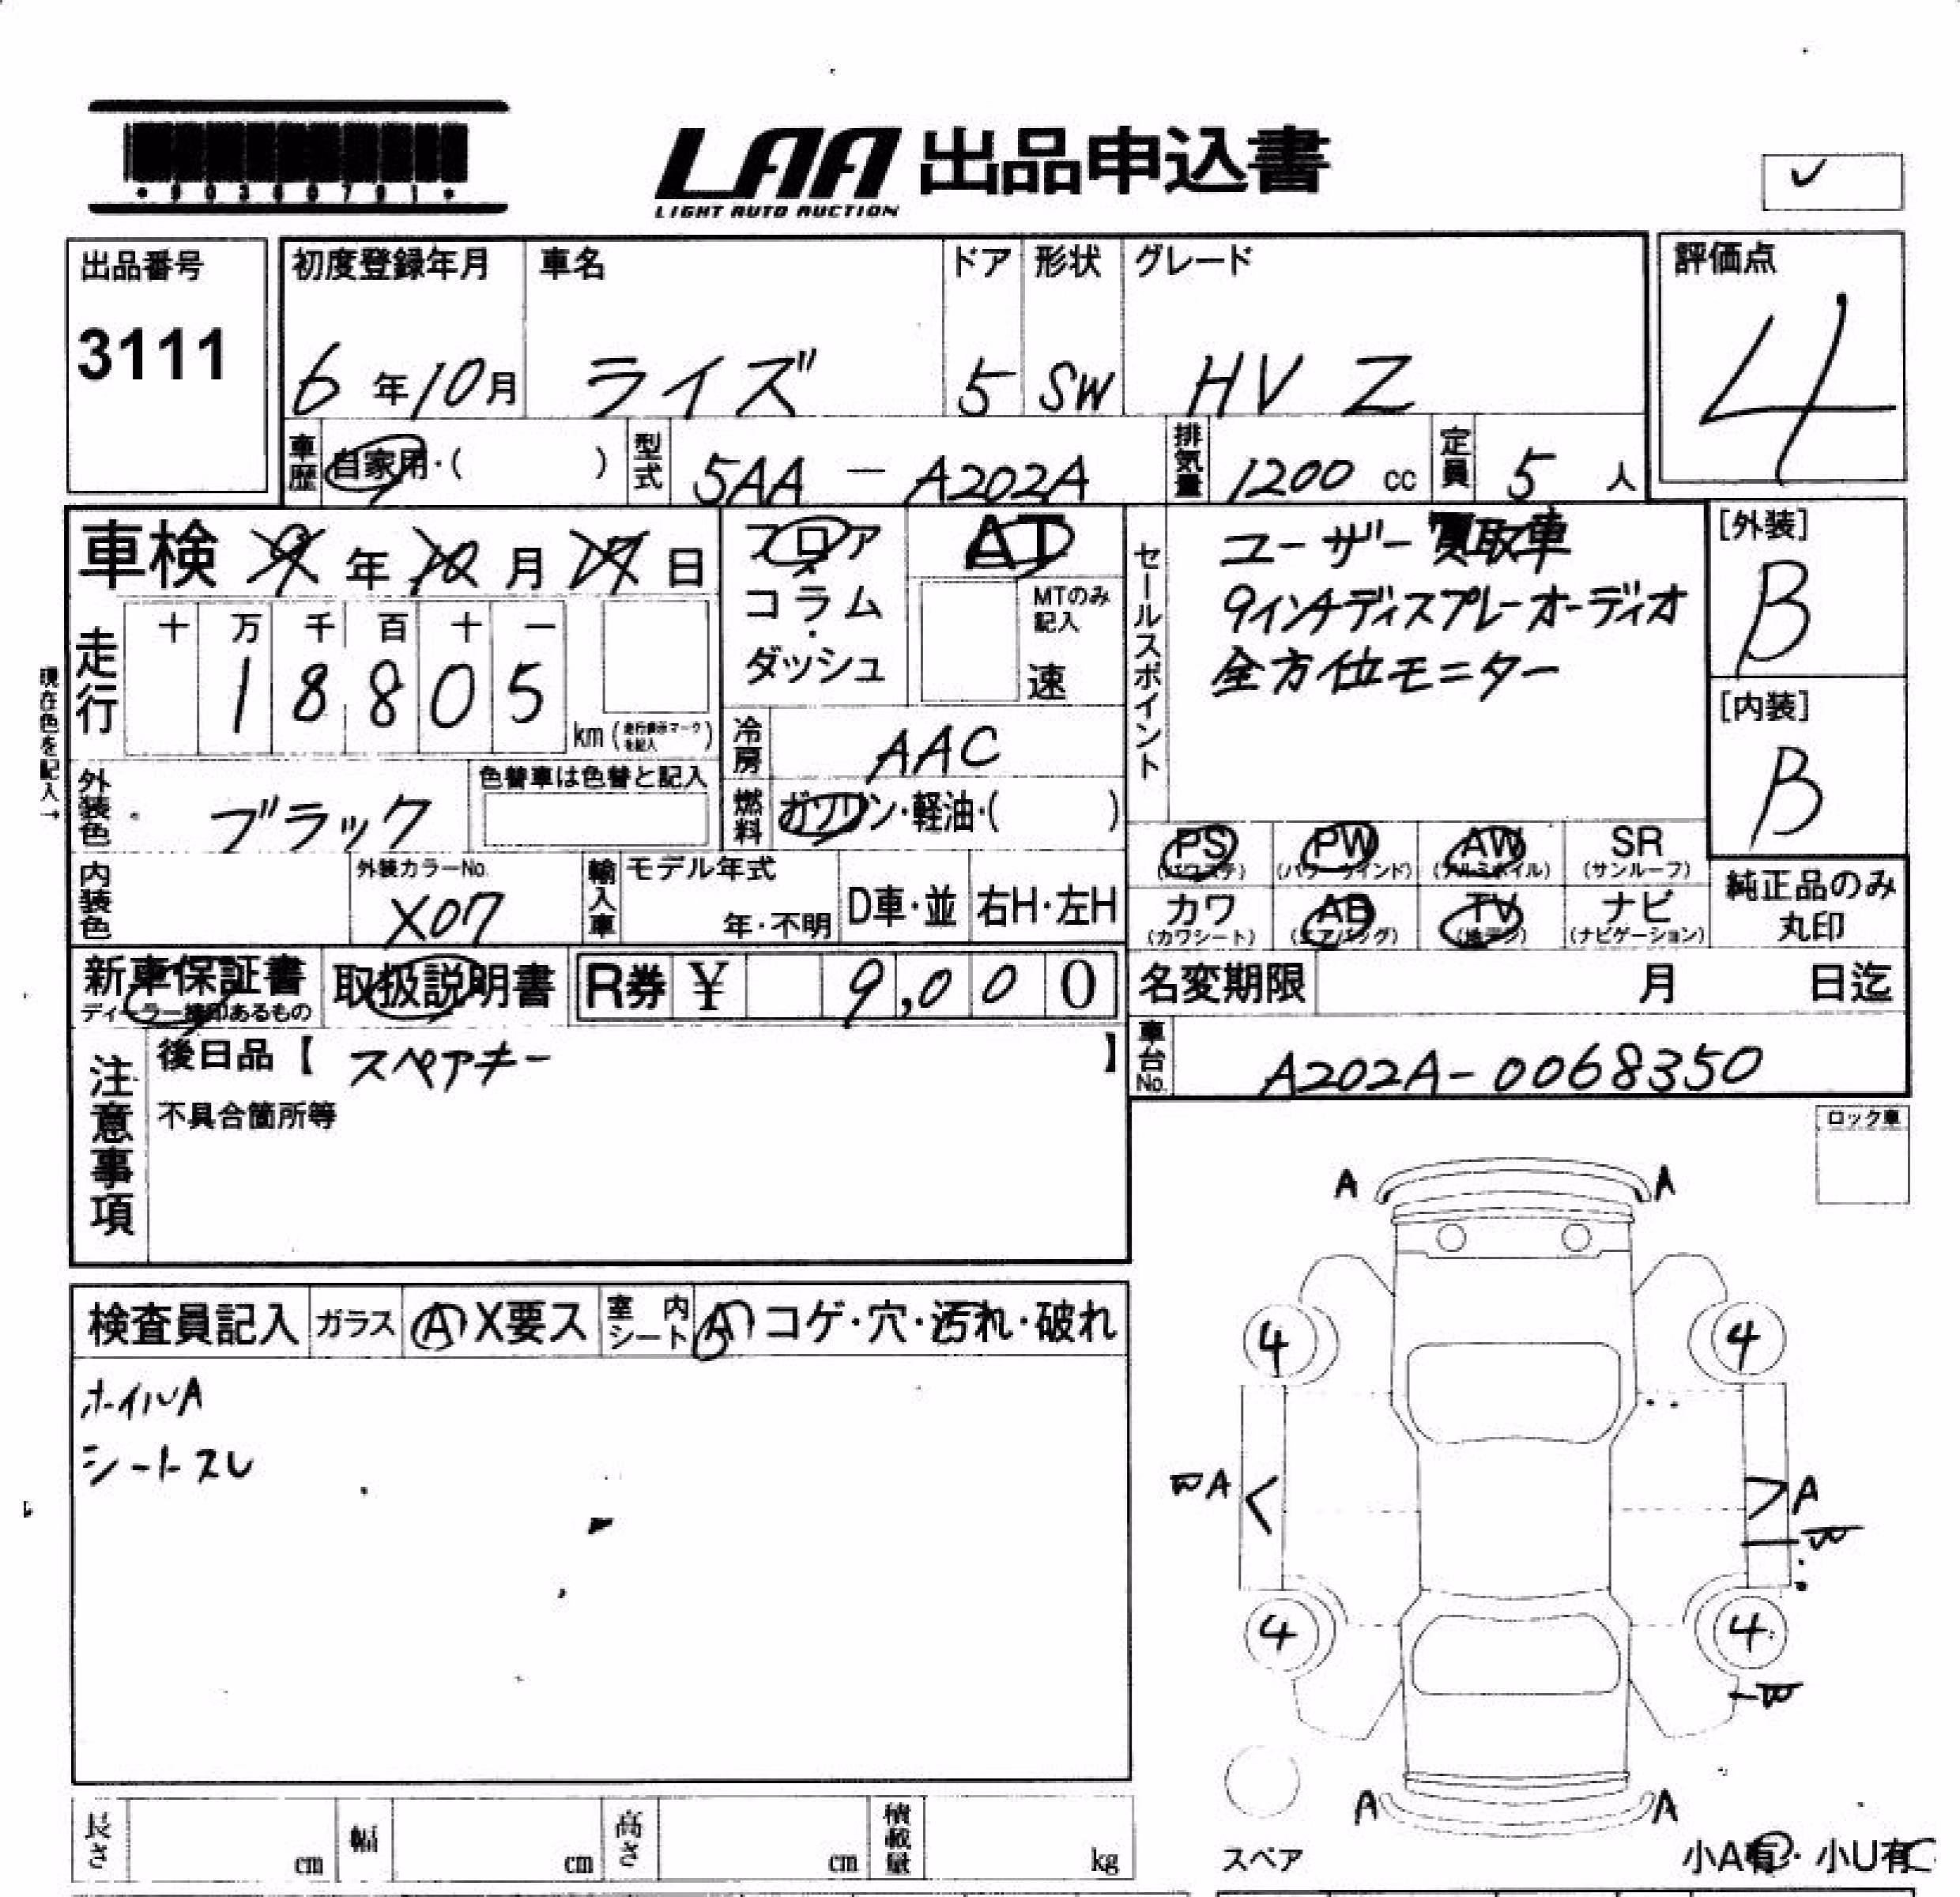 LAA 出品申込書
LIGHT AUTO AUCTION
出品番号
3111
初度登録年月
6年10月
車名
ライズ
ドア
5
形状
SW
グレード
HV Z
評価点
4
車歴 自家用・( )
型式 5AA - A202A
排気量 1200 cc
定員 5 人
車検 9年10月17日
フロア・コラム・ダッシュ
AT
MTのみ記入
速
セールスポイント
ユーザー買取車
9インチディスプレーオーディオ
全方位モニター
[外装]
B
[内装]
B
現在色を記入→
走行
十 万 千 百 十 一
1 8 8 0 5
km (走行表示マークを記入)
冷房 AAC
燃料 ガソリン・軽油・( )
外装色 ブラック
色替車は色替と記入
内装色
外装カラーNo.
X07
輸入車
モデル年式
年・不明
D車・並
右H・左H
PS (パワステ)
PW (パワーウインド)
AW (アルミホイル)
SR (サンルーフ)
カワ (カワシート)
AB (エアバッグ)
TV (地デジ)
ナビ (ナビゲーション)
純正品のみ丸印
新車保証書
取扱説明書
R券 ¥ 9,000
名変期限 月 日迄
車台No. A202A-0068350
注意事項
後日品【 スペアキー 】
不具合箇所等
ロック車
検査員記入 ガラス A X要ス 室内シート A コゲ・穴・汚れ・破れ
ホイルA
シートスレ
A A
4 4
W A A
W
4 4
W
A A
スペア
小A有・小U有
長さ cm 幅 cm 高さ cm 積載量 kg